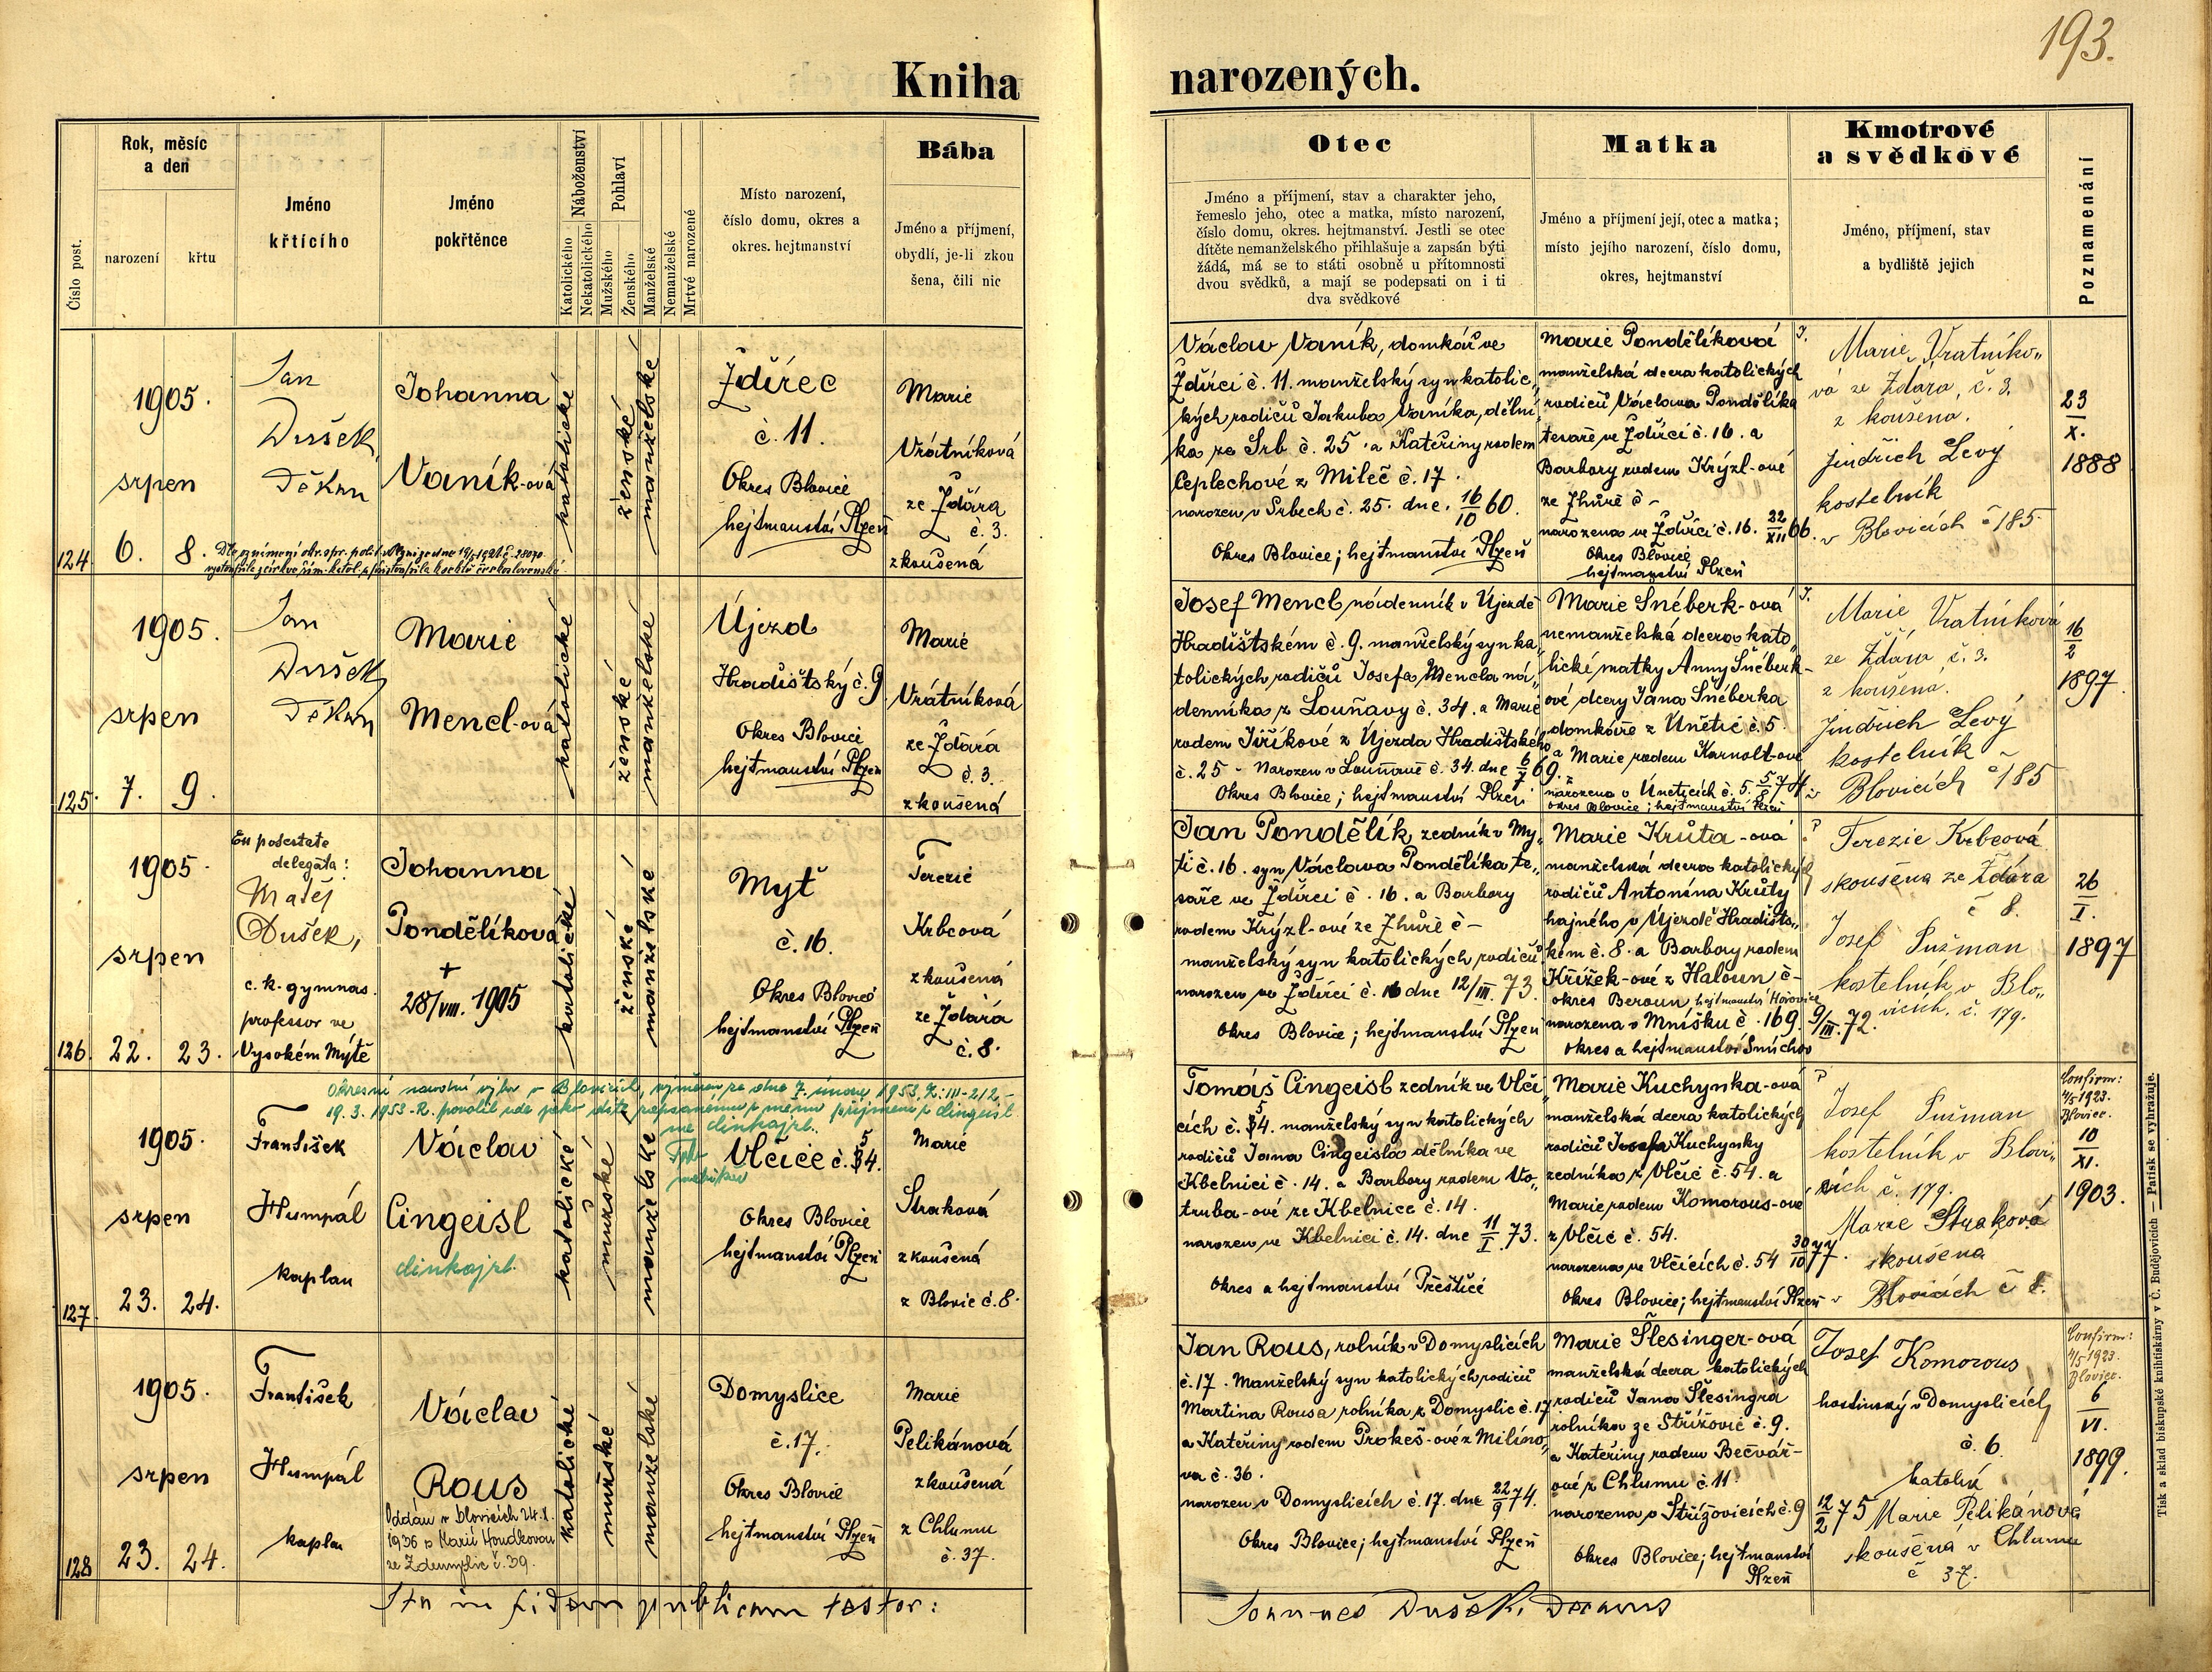 193.
Kniha narozených.
Číslo post.
Rok, měsíc
a den
narození
křtu
Jméno
křtícího
Jméno
pokřtěnce
Náboženství
Katolického
Nekatolického
Pohlaví
Mužského
Ženského
Manželské
Nemanželské
Mrtvé narozené
Místo narození,
číslo domu, okres a
okres. hejtmanství
Bába
Jméno a příjmení,
obydlí, je-li zkou
šena, čili nic
Otec
Jméno a příjmení, stav a charakter jeho,
řemeslo jeho, otec a matka, místo narození,
číslo domu, okres. hejtmanství. Jestli se otec
dítěte nemanželského přihlašuje a zapsán býti
žádá, má se to státi osobně u přítomnosti
dvou svědků, a mají se podepsati on i ti
dva svědkové
Matka
Jméno a příjmení její, otec a matka;
místo jejího narození, číslo domu,
okres, hejtmanství
Kmotrové
a svědkové
Jméno, příjmení, stav
a bydliště jejich
Poznamenání
124
1905.
srpen
6. 8.
Jan
Dušek
Děkan
Johanna
Vaník-ová
katolické
ženské
manželské
Ždírec
č. 11.
Okres Blovice
hejtmanství Plzeň
Marie
Vrátníková
ze Ždára
č. 3.
zkoušená
Václav Vaník, domkář ve
Ždírci č. 11. manželský syn katolic„
kých rodičů Jakuba Vaníka, dělní„
ka ze Srb č. 25 a Kateřiny rodem
Ceplechové z Mileč č. 17.
narozen v Srbech č. 25. dne 16/10 60.
Okres Blovice; hejtmanství Plzeň
Marie Pondělíková
manželská dcera katolických
rodičů Václava Pondělíka
tesaře ve Ždírci č. 16. a
Barbory rodem Krýzl-ové
ze Zhůře č –
narozena ve Ždírci č. 16. 22/XII 66.
Okres Blovice
hejtmanství Plzeň
Marie Vratníko„
vá ze Ždára, č. 3.
zkoušena.
Jindřich Levý
kostelník
v Blovicích č 185
23
X.
1888
125.
1905.
srpen
7. 9.
Jan
Dušek
Děkan
Marie
Mencl-ová
katolické
ženské
manželské
Újezd
Hradištský č. 9
Okres Blovice
hejtmanství Plzeň
Marie
Vrátníková
ze Ždára
č. 3.
zkoušená
Josef Mencl, nádenník v Újezdě
Hradištském č. 9. manželský syn ka„
tolických rodičů Josefa Mencla ná„
denníka z Louňavy č. 34. a Marie
rodem Jiříkové z Újezda Hradištského
č. 25 - Narozen v Louňavě č. 34. dne
Okres Blovice; hejtmanství Plzeň
Marie Šnéberk-ová
nemanželská dcera kato„
lické matky Anny Šnéberk-
ové dcery Jana Šnéberka
domkáře z Únětic č. 5
a Marie rodem Karnolt-ové
narozena v Úněticích č. 5. 5/8 74
okres Blovice; hejtmanství Plzeň
Marie Vratníková
ze Ždára, č. 3.
zkoušena.
Jindřich Levý
kostelník
v Blovicích č 185
16
2
1897
126.
1905.
srpen
22. 23.
Ex potestate
delegata:
Matěj
Dušek,
c. k. gymnas.
professor ve
Vysokém Mýtě
Johanna
Pondělíková
+
28/VIII. 1905
katolické
ženské
manželské
Myť
č. 16.
Okres Blovice
hejtmanství Plzeň
Terezie
Krbcová
zkoušená
ze Ždára
č. 8.
Jan Pondělík, zedník v My„
ti č. 16. syn Václava Pondělíka te„
saře ve Ždírci č. 16. a Barbory
rodem Krýzl-ové ze Zhůře č –
manželský syn katolických rodičů
narozen ve Ždírci č. 16 dne 12/III. 73.
Okres Blovice; hejtmanství Plzeň
Marie Krůta-ová
manželská dcera katolických
rodičů Antonína Krůty
hajného v Újezdě Hradišts„
kém č. 8. a Barbory rodem
Křížek-ové z Haloun č-
okres Beroun, hejtmanství Hořovice
narozena v Mníšku č. 169. 9/III. 72.
okres a hejtmanství Smíchov
Terezie Krbcová
zkoušena ze Ždára
č 8.
Josef Pužman
kostelník v Blo„
vicích, č. 179.
26
I.
1897
127
1905.
srpen
23. 24.
František
Humpál
kaplan
Okresní národní výbor v Blovicích, výměrem ze dne 7. února 1953, Zn. III-212-
19. 3. 1953-R. povolil
Václav
Cingeisl
cinkajzl.
katolické
mužské
manželské
Vlčice č. 54.
Okres Blovice
hejtmanství Plzeň
Marie
Straková
zkoušená
z Blovic č. 8.
Tomáš Cingeisl zedník ve Vlči„
cích č. 54. manželský syn katolických
rodičů Jana Cingeisla dělníka ve
Kbelnici č. 14. a Barbory rodem Vo„
truba-ové ze Kbelnice č. 14.
narozen ve Kbelnici č. 14. dne 11/I. 73.
Okres a hejtmanství Přeštice
Marie Kuchynka-ová
manželská dcera katolických
rodičů Josefa Kuchynky
zedníka z Vlčic č. 54. a
Marie rodem Komorous-ové
z Vlčic č. 54.
narozena ve Vlčicích č. 54 30/10 77.
Okres Blovice; hejtmanství Plzeň
Josef Pužman
kostelník v Blovi„
cích č. 179.
Marie Straková
zkoušena
v Blovicích č 8.
Confirm:
4/5 1923.
Blovice.
10
XI.
1903.
128
1905.
srpen
23. 24.
František
Humpál
kaplan
Václav
Rous
Oddán v Blovicích 24. X.
1936 s Marií Houdkovou
ze Zdemyslic č. 39.
katolické
mužské
manželské
Domyslice
č. 17.
Okres Blovice
hejtmanství Plzeň
Marie
Pelikánová
zkoušená
z Chlumu
č. 37.
Jan Rous, rolník v Domyslicích
č. 17. Manželský syn katolických rodičů
Martina Rousa rolníka z Domyslic č. 17
a Kateřiny rodem Prokeš-ové z Milíno„
va č. 36.
narozen v Domyslicích č. 17. dne 22/9 74.
Okres Blovice; hejtmanství Plzeň
Marie Šlesinger-ová
manželská dcera katolických
rodičů Jana Šlesingra
rolníka ze Střížovic č. 9.
a Kateřiny rodem Bečvář-
ové z Chlumu č. 11.
narozena v Střížovicích č. 9 12/2 75
Okres Blovice; hejtmanství
Plzeň
Josef Komorous
hostinský v Domyslicích
č. 6
katolík
Marie Pelikánová
zkoušená v Chlumu
č 37.
Confirm:
4/5 1923.
Blovice.
6
VI.
1899.
Ita in fidem publicam testor:
Joannes Dušek, Decanus
Tisk a sklad biskupské knihtiskárny v Č. Budějovicích — Patisk se vyhražuje.